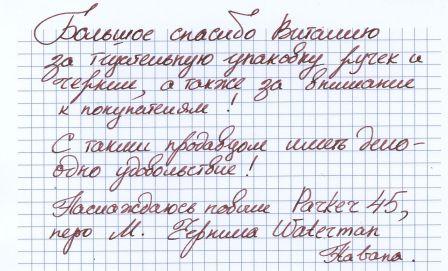 Большое спасибо Виталию
за тщательную упаковку ручек и
чернил, а также за внимание
к покупателям!
С таким продавцом иметь дело -
одно удовольствие!
Наслаждаюсь новым Parker 45,
перо М. Чернила Waterman
Havana.